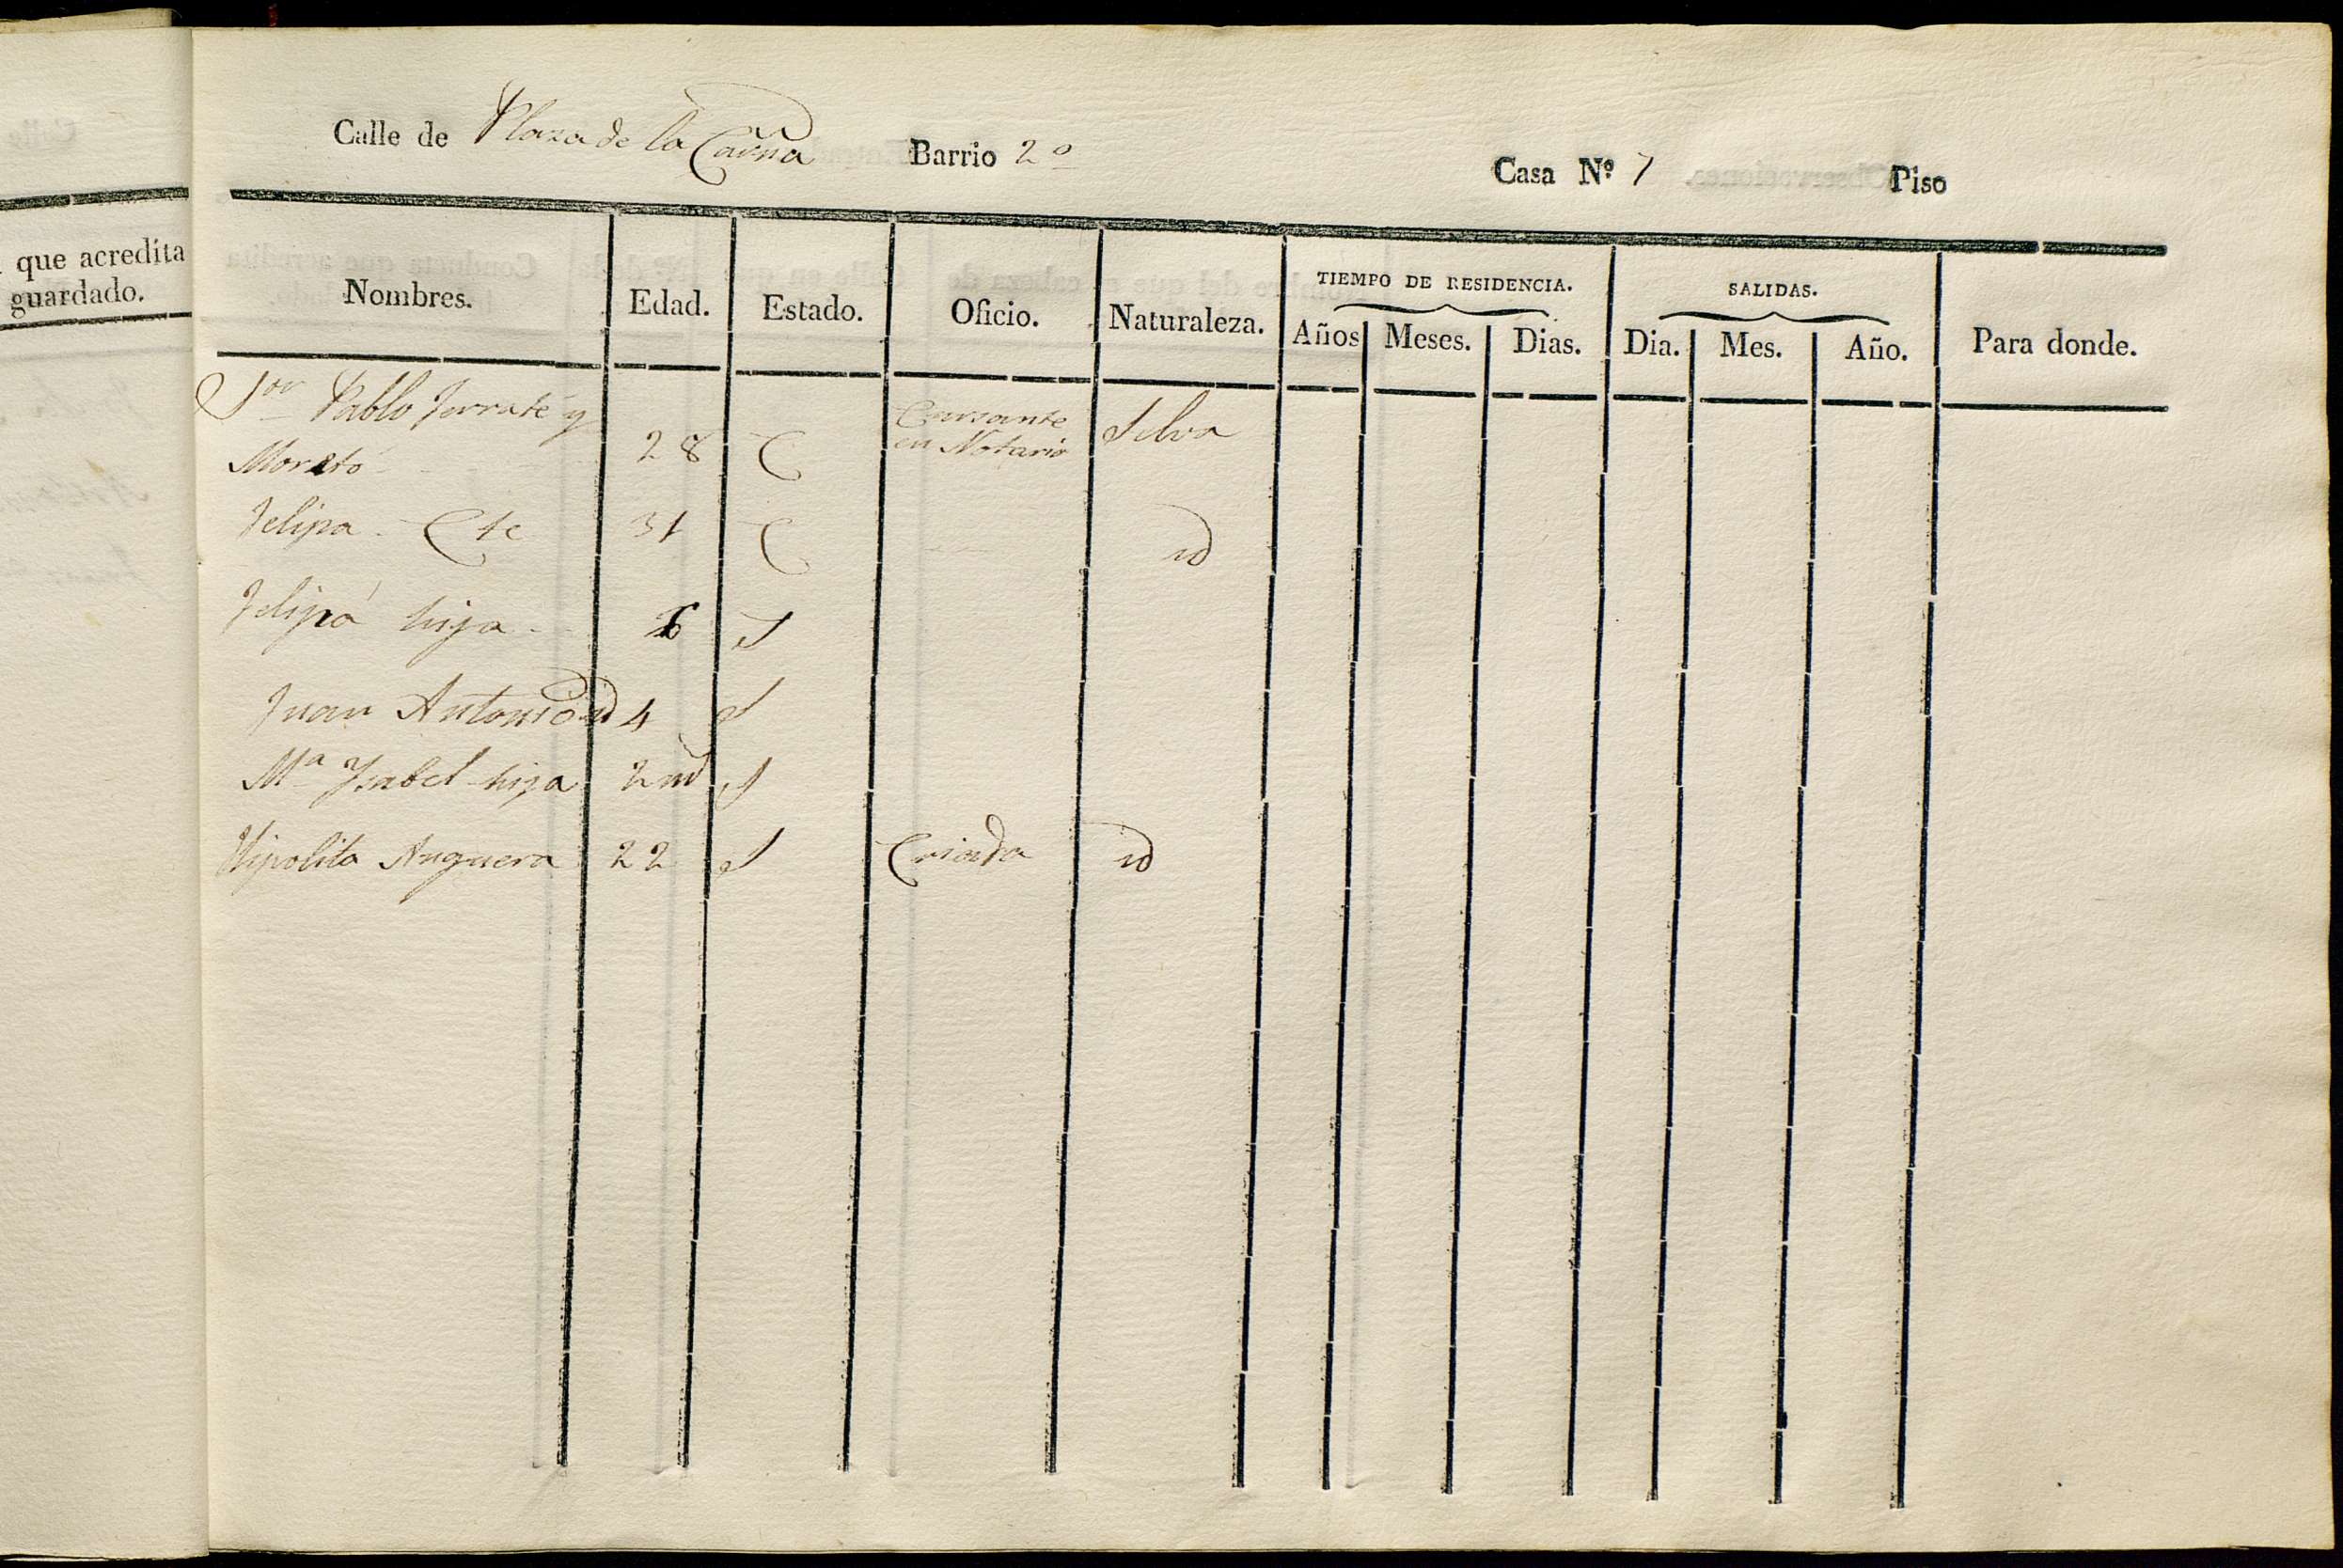 que acredita
guardado.
Calle de Plaza de la Carna Barrio 2º Casa Nº 7 Piso
Nombres. Edad. Estado. Oficio. Naturaleza. TIEMPO DE RESIDENCIA. SALIDAS. Para donde.
Años Meses. Dias. Dia. Mes. Año.
Sor Pablo Ferraté y
Moretó 28 C Cursante en Notario Selva
Felipa Cte 31 C id
Felipa hija 6 S
Juan Antonio id 4 S
Mª Ysabel hija 2 m S
Hipolita Anguera 22 S Criada id